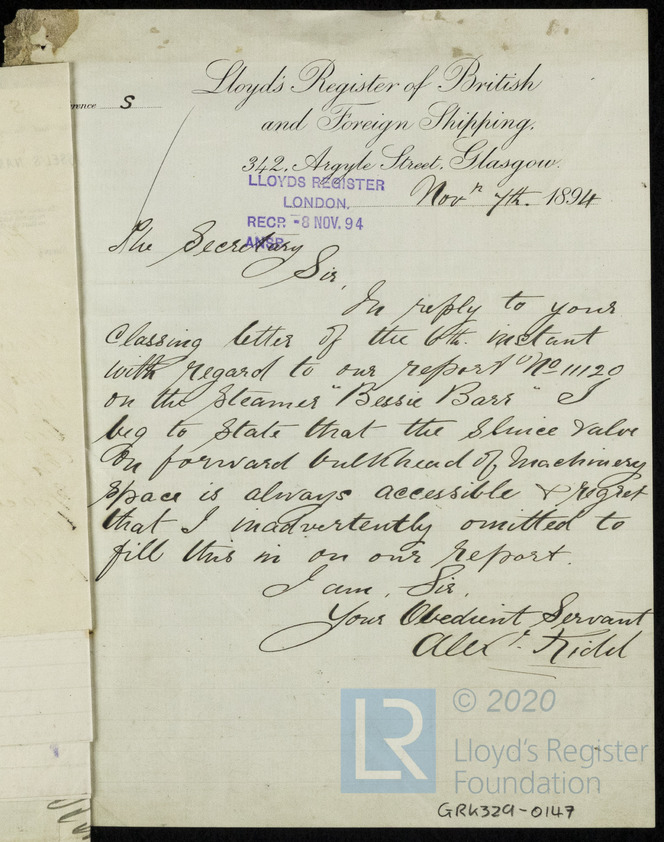 Lloyd's Register of British
and Foreign Shipping.
rence S
342, Argyle Street, Glasgow.
LLOYDS REGISTER
LONDON.
RECP. -8 NOV. 94
ANSP.
Novr 7th. 1894
The Secretary
Sir,
In reply to your
Classing letter of the 6th. instant
with regard to our report No 11120
on the Steamer "Bessie Barr" I
beg to state that the Sluice Valve
on forward bulkhead of Machinery
space is always accessible & regret
that I inadvertently omitted to
fill this in on our report.
I am, Sir,
Your Obedient Servant
Alexr. Kidd
LR
© 2020
Lloyd's Register
Foundation
GRK329-0147